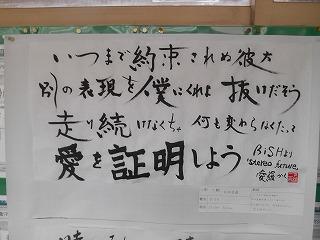 いつまで約束されぬ彼方
別の表現を僕にくれよ 抜けだそう
走り続けなくちゃ 何も変わらなくたって
愛を証明しよう
BiSHより
"stereo future"